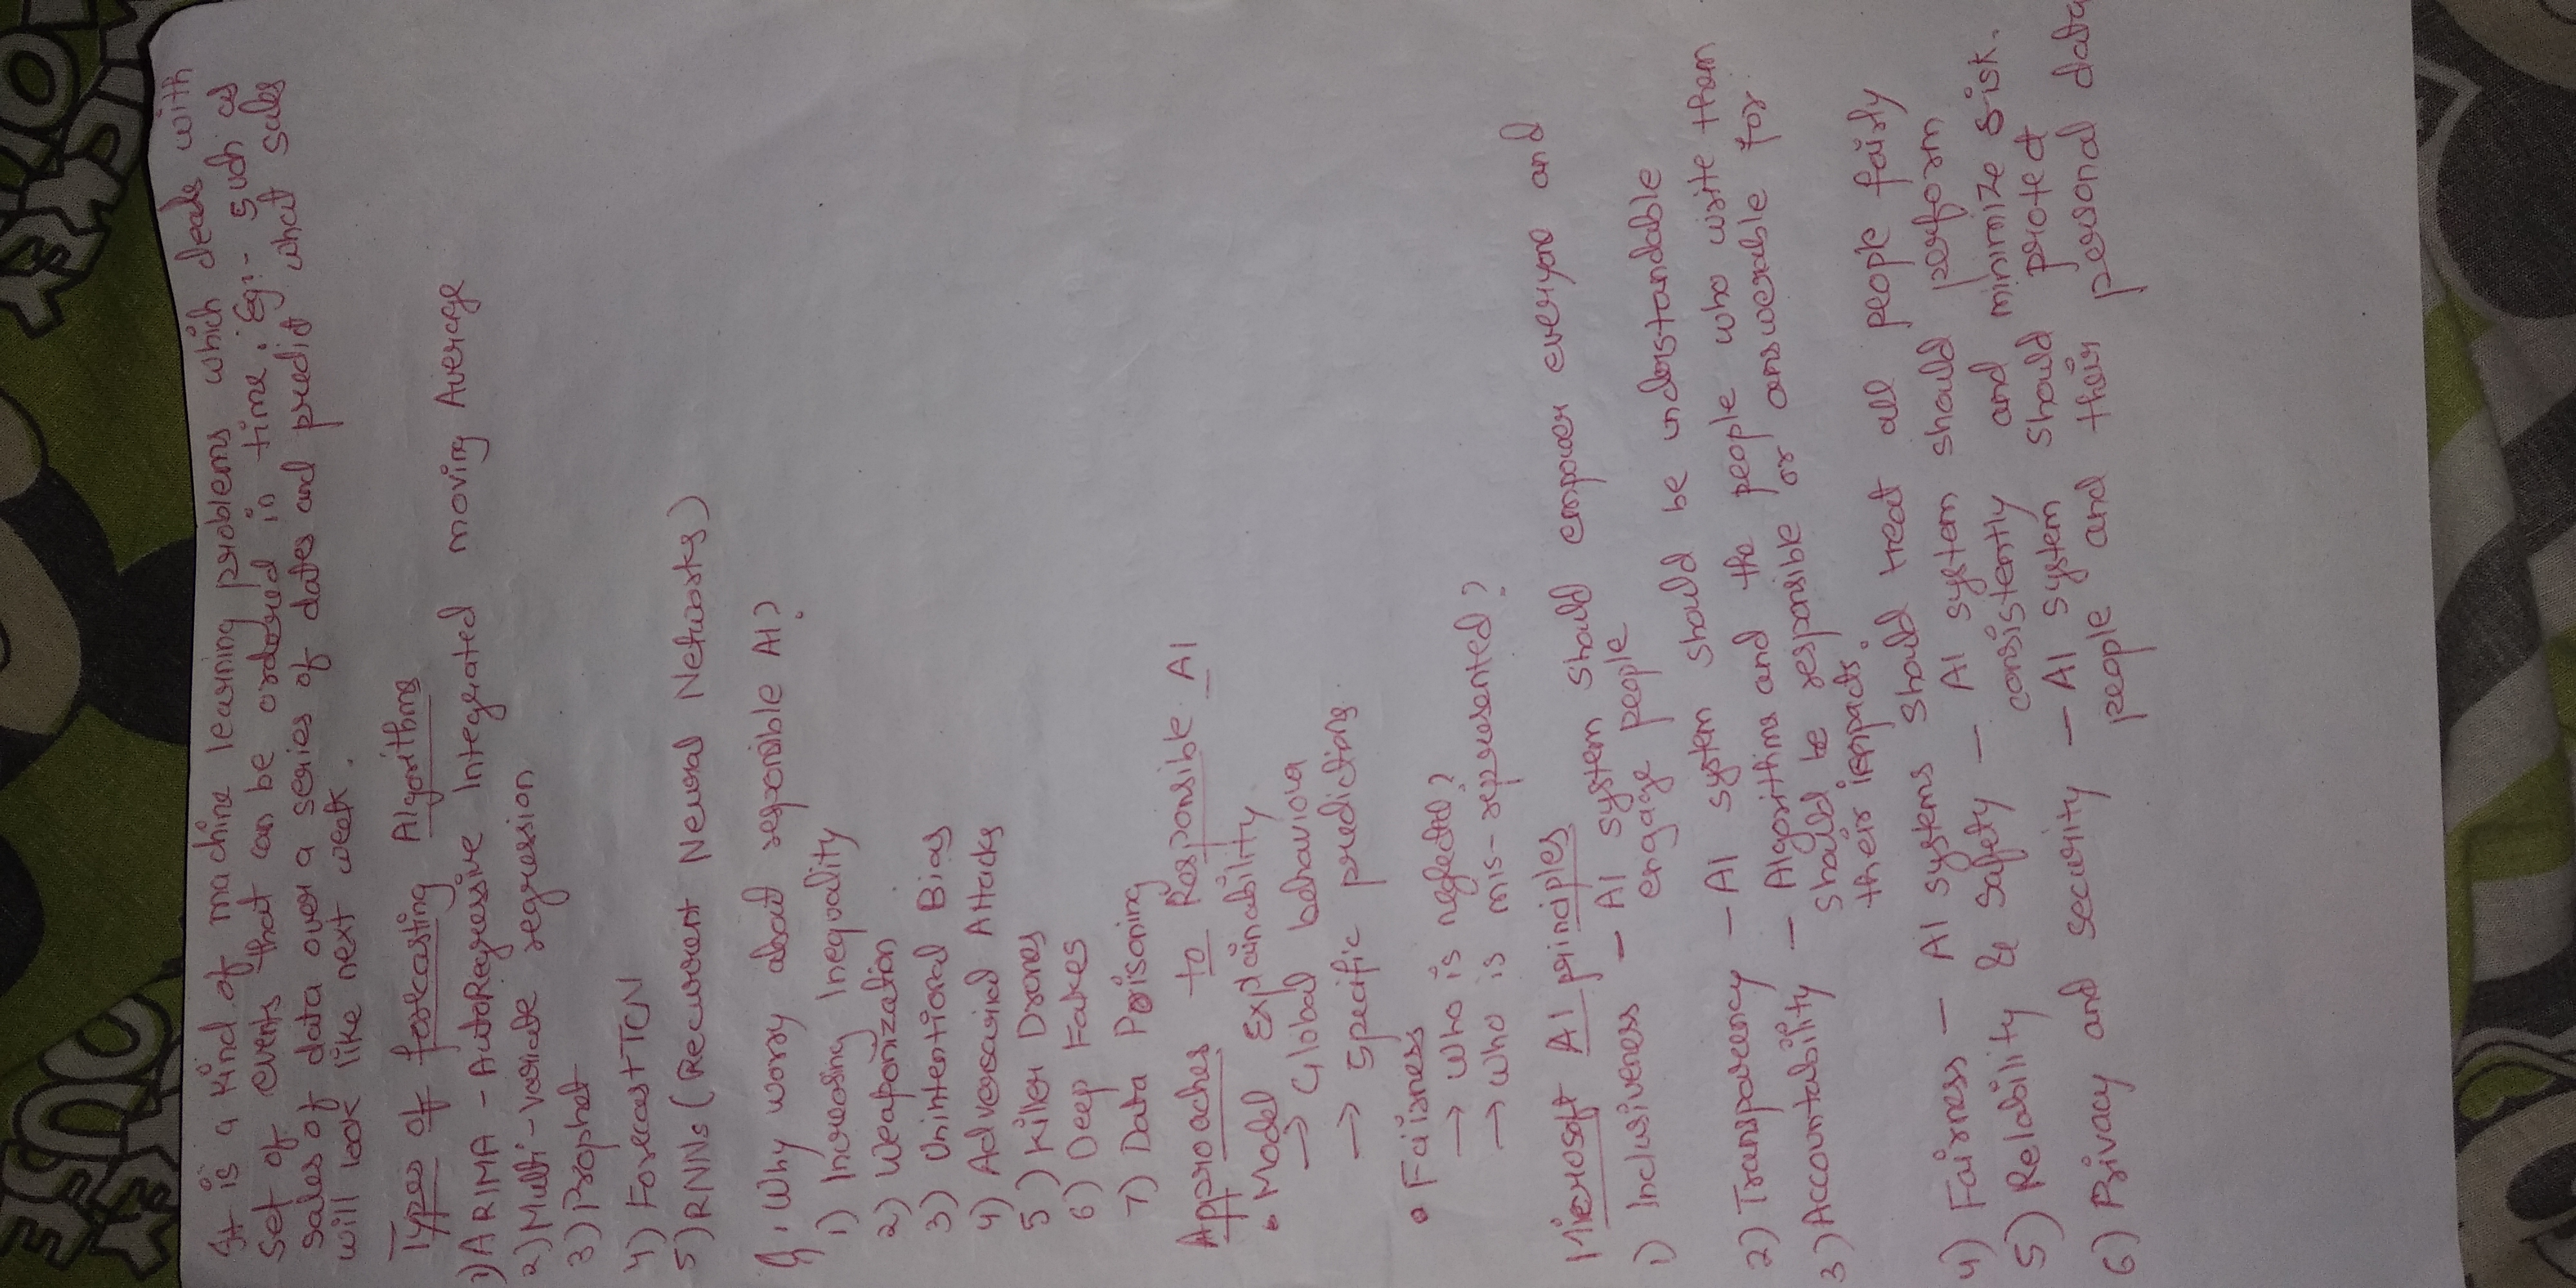 It is a kind of machine learning problems which deals with
set of events that can be ordered in time. Eg:- such as
sales of data over a series of dates and predict what sales
will look like next week.
Types of forecasting Algorithms
1) ARIMA - AutoRegressive Integrated moving Average
2) Multi-variate regression
3) Prophet
4) Forecast TCN
5) RNNs (Recurrent Neural Networks)
Q. Why worry about responsible AI?
1) Increasing Inequality
2) Weaponization
3) Unintentional Bias
4) Adversarial Attacks
5) Killer Drones
6) Deep Fakes
7) Data Poisoning
Approaches to Responsible AI
• Model Explainability
→ Global behaviour
→ Specific predictions
• Fairness
→ who is neglected?
→ who is mis-represented?
Microsoft AI principles
1) Inclusiveness - AI system should empower everyone and
engage people
2) Transparency - AI system should be understandable
3) Accountability - Algorithms and the people who write them
should be responsible or answerable for
their impacts.
4) Fairness - AI systems should treat all people fairly
5) Relability & Safety - AI system should perform
consistently and minimize risk.
6) Privacy and security - AI system should protect
people and their personal data